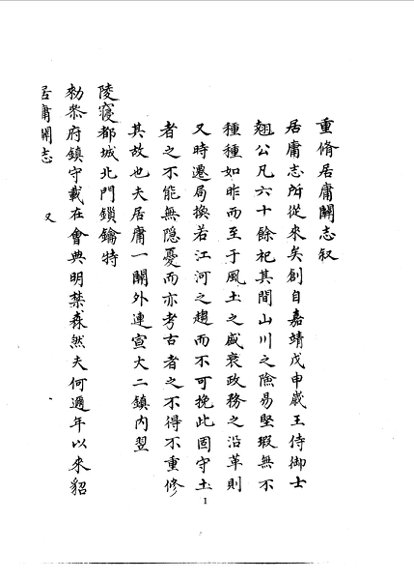 重脩居庸關志叙
居庸志所從來矣創自嘉靖戊申歲王侍御士
翹公凡六十餘祀其間山川之險易堅瑕無不
種種如昨而至于風土之盛衰政務之沿革則
又時遷局換若江河之趨而不可挽此固守土
者之不能無隐憂而亦考古者之不得不重修
其故也夫居庸一關外連宣大二鎮内翌
陵寢都城北門鎖鑰特
勑叅府鎮守載在會典明禁森然夫何邇年以來貂
居庸關志
又
1